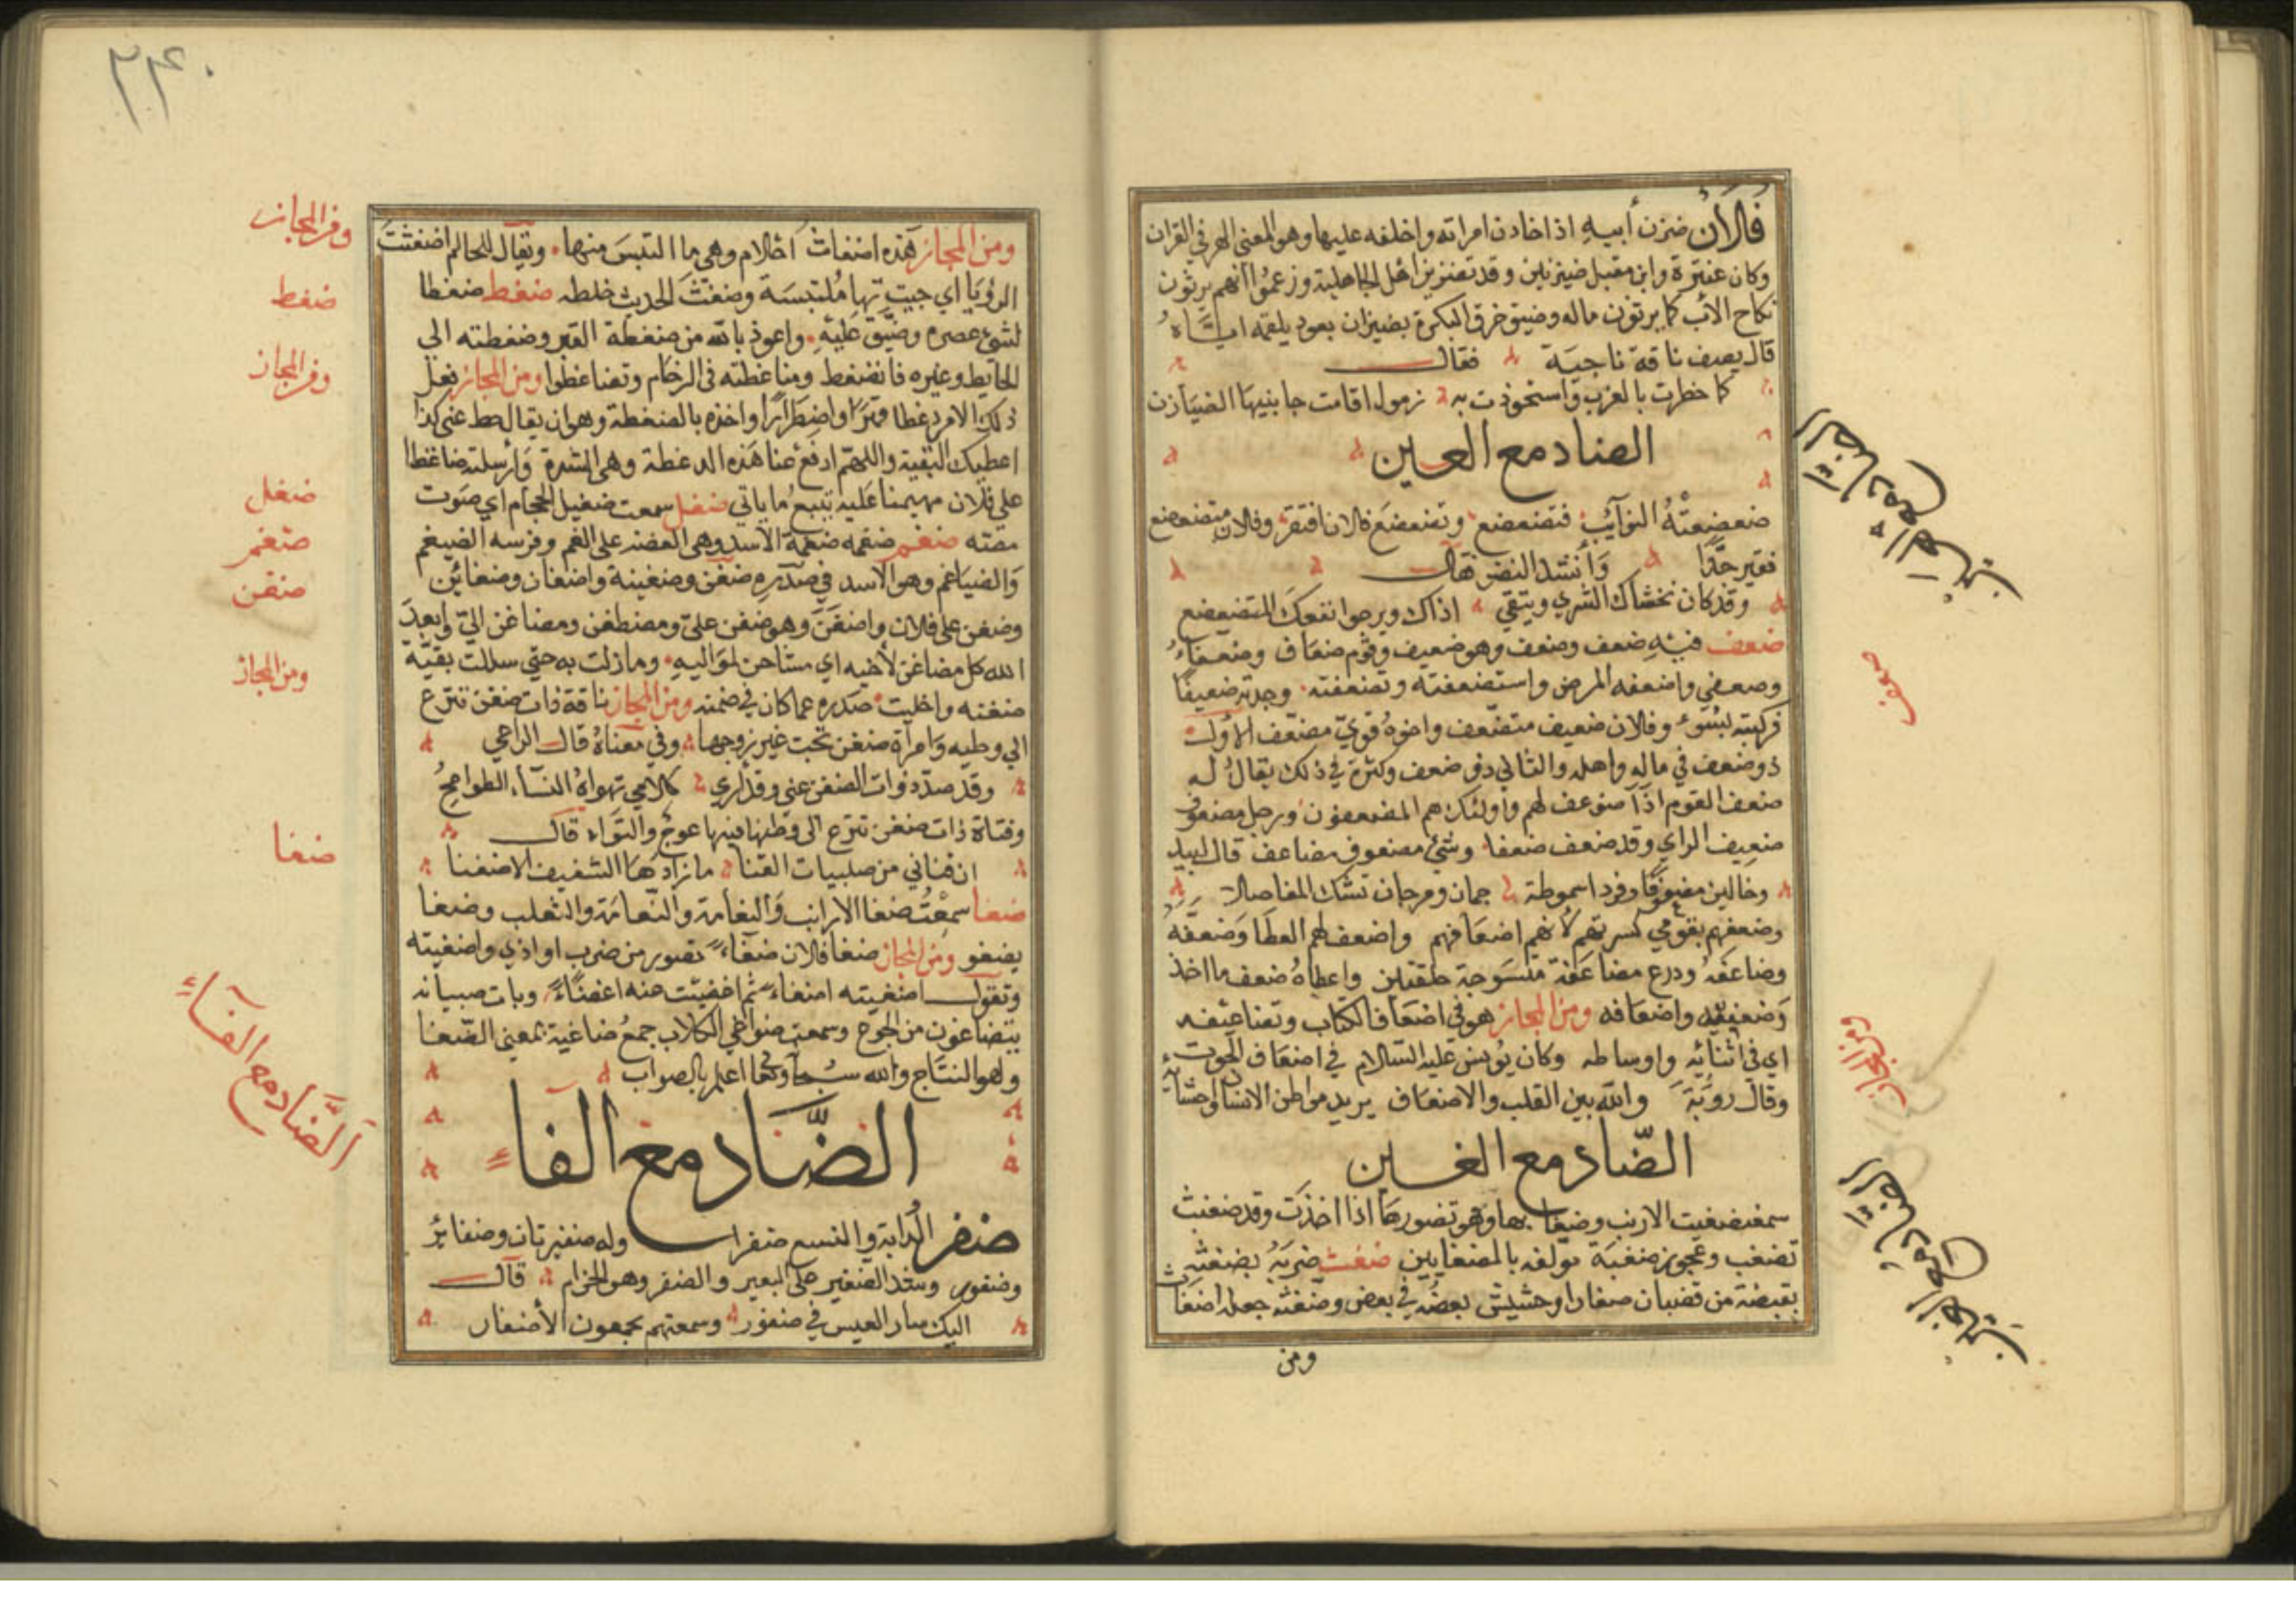 فلان ضيزن أبيه اذا خادن امراته واخلفه عليها وهو المعنى المر في القران
وكان عنترة وابن مقبل ضيزنين وقد تضيزن اهل الجاهلية وزعموا انهم يرثون
نكاح الأب كما يرثون ماله وضيق خرق البكرة بضيزان بعود يلقمه اياه
قال يصف ناقة ناجية فقال
كما خطرت بالغرب واستحوذت به زمول اقامت جانبيها الضيازن
الضاد مع العين
ضعضعته النوآئب فتضعضع وتضعضع فلان افتقر وفلان متضعضع
فقير جدا وأنشد النضر قال
وقد كان نخشاك الثري ويتقي اذاك ويرجوا نفعك المتضعضع
ضعف فيه ضعف وضعف وهو ضعيف وقوم ضعاف وضعفاء
وضعفى واضعفه المرض واستضعفته وتضعفته وجدته ضعيفا
فركبته بسوء وفلان ضعيف متضعف واخوه قوي مضعف الأول
ذو ضعف في ماله واهله والثاني ذو ضعف وكثرة في ذلك يقال له
ضعف القوم اذا ضوعف لهم واولئك هم المضعفون ورجل مضعوف
ضعيف الراي وقد ضعف ضعفا وشئ مضعوف مضاعف قال لبيد
وخالين مضعوفا وفردا سموطه جمان ومرجان تشك المفاصلا
وضعفهم بقومي كسرتهم لأنهم اضعافهم واضعف لهم العطا وضعفه
وضاعفه ودرع مضاعفة منسوجة حلقتين واعطاه ضعف ما اخذ
وضعفيه واضعافه ومن المجاز هو في اضعاف الكتاب وتضاعيفه
اي في اثنائه واوساطه وكان يونس عليه السلام في اضعاف الحوت
وقال روبة والله بين القلب والاضعاف يريد مواطن الانسان وحشاه
الضاد مع الغين
سمعت ضغيب الارنب وضغابها وهو تضورها اذا اخذت وقد ضغبت
تضغب وعجوز ضغبة مولعة بالضغابيس ضغث ضربه بضغث
بقبضة من قضبان صغار او حشيش بعضه في بعض وضغثه جعله اضغاث
ومن
الضاد مع العين
ضعف
ومن المجاز
الضاد مع الغين
٣٤٠
ومن المجاز هذه اضغاث أحلام وهي ما التبس منها وتقال للحالم اضغثت
الرؤيا اي جيت بها ملتبسة وضغث الحديث خلطه ضغط ضغطا
لشئ عصره وضيق عليه واعوذ بالله من ضغطة القبر وضغطته الى
الحايط وغيره فانضغط وضاغطته في الزحام وتضاغطوا ومن المجاز فعل
ذلك الامر ضغطا قهرا واضطرارا واخذه بالضغطة وهو ان يقال حط عني كذا
اعطيك البقية واللهم ادفع عنا هذه الضغطة وهي الشدة وأرسلته ضاغطا
على فلان مهيمنا عليه يتبع ما ياتي ضغل سمعت ضغيل الحجام اي صوت
مصته ضغم ضغمه ضغمة الأسد وهي العض على الفم وفرسه الضيغم
والضياغم وهو الاسد في صدره ضغن وضغينة واضغان وضغائن
وضغن على فلان واضغن وهو ضغن علي ومضطغن ومضاغن الي وابعد
الله كل مضاغن لأخيه اي مشاحن لمواليه وما زلت به حتى سللت بقية
ضغنه واخليت صدره عما كان في ضمنه ومن المجاز ناقة ذات ضغن تنزع
الى وطنه وامرأة ضغن تحب غير زوجها وفي معناه قال الراعي
وقد صد ذوات الضغن عني وقد أرى كلامي تهواه النساء الطوامح
وقناة ذات ضغن تنزع الى وطنها فيها عوج والتواء قال
ان قناتي من صلبيات القنا ما زادها التثقيف الا ضغنا
ضغا سمعت ضغا الارانب والنعامة والثعلب وضغا
يضغو ومن المجاز ضغا فلان ضغاء تضور من ضرب او اذي واضغيته
وتقول اضغيته اضغاء ثم اغضيت عنه اغضاء وبات صبيانه
يتضاغون من الجوع وسمعت ضواغي الكلاب جمع ضاغية بمعنى الضغا
وهو النتاج والله سبحانه وتعالى اعلم بالصواب
الضاد مع الفاء
ضفر الدابة والنسع ضفرا وله ضفيرتان وضفائر
وضفور وشد الضفير على البعير والضفر وهو الحزام قال
اليك سار العيس في ضفور وسمعتهم يجمعون الأضفار
ومن المجاز
ضغط
ومن المجاز
ضغل
ضغم
ضغن
ومن المجاز
ضغا
الضاد مع الفاء